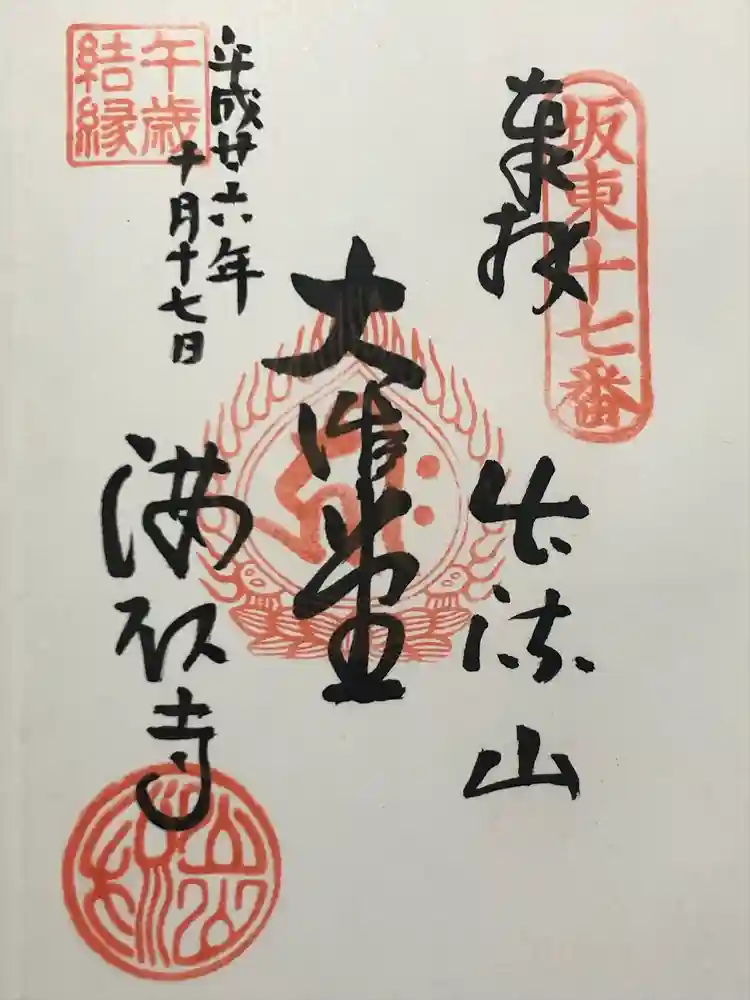 坂東十七番
奉拝
出流山
大御堂
平成廿六年
十月十七日
午歳
結縁
満願寺